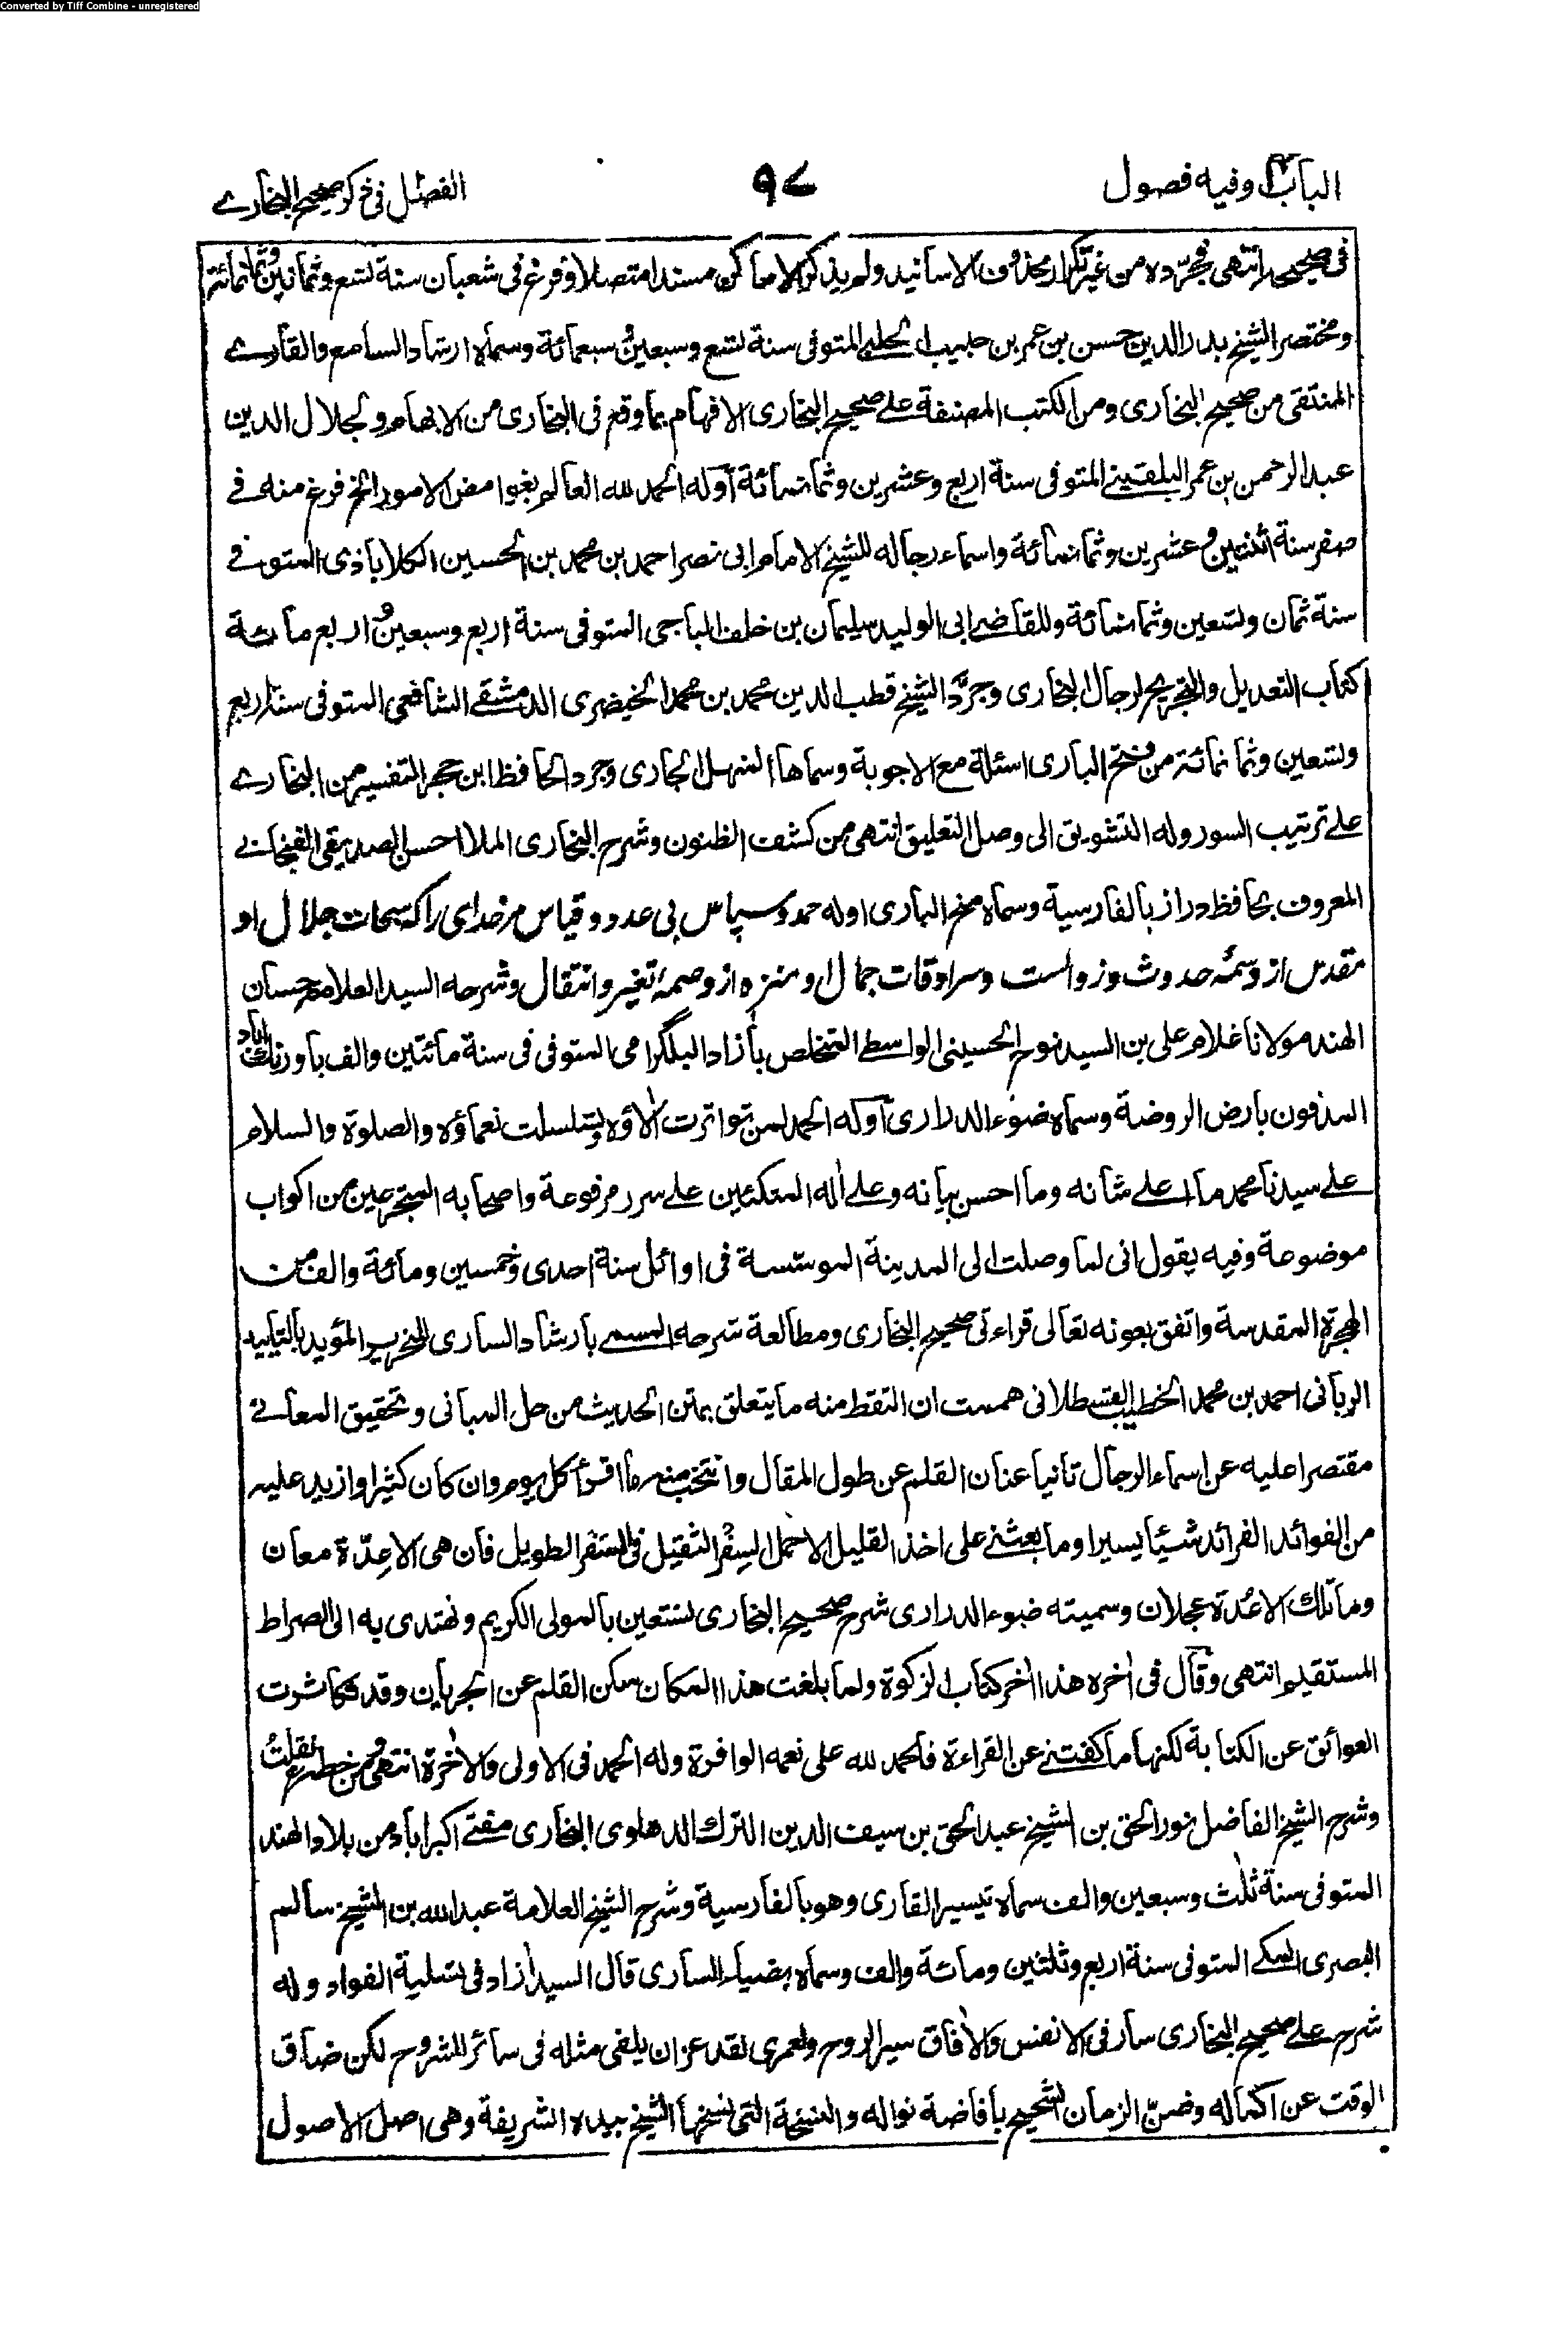 Converted by Tiff Combine - unregistered
الباب وفيه فصول
٩٧
الفصل فى ذكر صحيح البخارے
فى صحيحه انتهى فجرّده من غير تكرار محذوف الاسانيد ولم يذكر الا ما كان مسندا متصلا وفرغ فى شعبان سنة تسع وثمانين وثمانمائة
ومختصر الشيخ بدر الدين حسن بن عمر بن حبيب الحلبے المتوفى سنة تسع وسبعين وسبعمائة وسماه ارشاد السامع والقارے
المنتقى من صحيح البخارى ومن الكتب المصنفة علے صحيح البخارى الافهام بما وقع فى البخارى من الابهام و لجلال الدين
عبد الرحمن بن عمر البلقينے المتوفى سنة اربع وعشرين وثمانمائة أوله الحمد لله العالم بغوامض الامور الخ فرغ منه فے
صفر سنة اثنتين وعشرين وثمانمائة واسماء رجاله للشيخ الامام ابى نصر احمد بن محمد بن الحسين الكلاباذى المتوفے
سنة ثمان وتسعين وثمانمائة وللقاضے ابى الوليد سليمان بن خلف الباجى المتوفى سنة اربع وسبعين و اربع مائة
كتاب التعديل والتجريح لرجال البخارى وجرّد الشيخ قطب الدين محمد بن محمد الخيضرى الدمشقے الشافعى المتوفى سنة اربع
وتسعين وثمانمائة من فتح البارى اسئلة مع الاجوبة وسماها المنهل الجارى وجرد الحافظ ابن حجر التفسير من البخارے
علے ترتيب السور وله التشويق الى وصل التعليق انتهى من كشف الظنون وشرح البخارى الملا احسن الصديقى الفنجابے
المعروف بحافظ دراز بالفارسية وسماه منح البارى اوله حمد وسپاس بى عدد وقياس مر خداى را كه سبحات جلال او
مقدس از وسمهٔ حدوث وزوالست وسرادقات جمال او منزه از وصمهٔ تغير وانتقال وشرحه السيد العلامة حسان
الهند مولانا غلام على بن السيد نوح الحسينى الواسطے المتخلص بآزاد البلگرامى المتوفى فى سنة مائتين والف باورنك اباد
المدفون بارض الروضة وسماه ضوء الدرارى أوله الحمد لمن تواترت آلاؤه وتسلسلت نعماؤه والصلوة والسلام
علے سيدنا محمد ما اعلے شانه وما احسن بيانه وعلے آله المتكئين علے سرر مرفوعة واصحابه المتجرعين من اكواب
موضوعة وفيه يقول انى لما وصلت الى المدينة المؤسّسة فى اوائل سنة احدى وخمسين ومائة والف من
الهجرة المقدسة واتفق بعونه تعالى قراءتى صحيح البخارى ومطالعة شرحه المسمے بارشاد السارى للنحرير المؤيد بالتاييد
الربانى احمد بن محمد الخطيب القسطلانى هممت ان التقط منه ما يتعلق بمتن الحديث من حل المبانى وتحقيق المعانے
مقتصرا عليه عن اسماء الرجال ثانيا عنان القلم عن طول المقال وانتخب منه ما اقرأ كل يوم وان كان كثيرا وازيد عليه
من الفوائد الفرائد شيئا يسيرا وما بعثنے على اخذ القليل الا حمل السِفر الثقيل فى السَفَر الطويل فان هى الا عِدّة معان
وما تلك الا عُدة عجلان وسميته ضوء الدرارى شرح صحيح البخارى نستعين بالمولى الكريم ونهتدى به الى الصراط
المستقيم انتهى وقال فى آخره هذا آخر كتاب الزكوة ولما بلغت هذا المكان سكن القلم عن الجريان وقد تكاثرت
العوائق عن الكتابة لكنها ما كفتنے عن القراءة فالحمد لله على نعمه الوافرة وله الحمد فى الاولى والآخرة انتهى ومن خطه نقلتُ
وشرح الشيخ الفاضل نور الحق بن الشيخ عبد الحق بن سيف الدين الترك الدهلوى البخارى مفتے اكبراباد من بلاد الهند
المتوفى سنة ثلث وسبعين والف سماه تيسير القارى وهو بالفارسية وشرح الشيخ العلامة عبد الله بن الشيخ سالم
البصرى المكے المتوفى سنة اربع وثلثين ومائة والف وسماه بضياء السارى قال السيد آزاد فى تسلية الفواد وله
شرح علے صحيح البخارى سار فى الانفس والآفاق سير الروح ولعمرى لقد عز ان يلفى مثله فى سائر الشروح لكن ضاق
الوقت عن اكماله وضنّ الزمان الشحيح بافاضة نواله والنسخة التى نسخها الشيخ بيده الشريفة وهى اصل الاصول